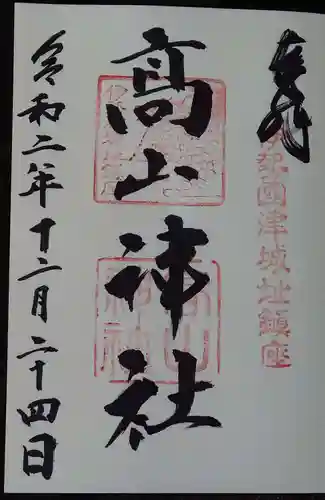 奉拝
伊勢國津城址鎮座
髙山神社
令和二年十二月二十四日